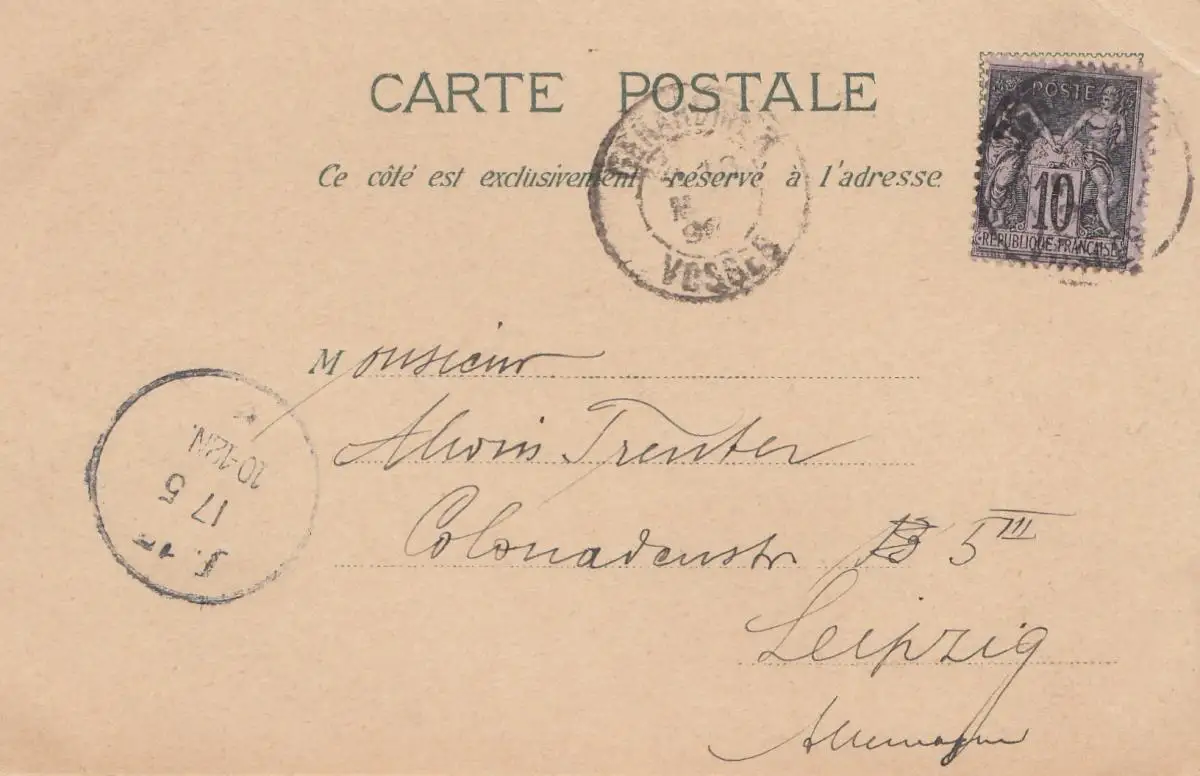 CARTE POSTALE
POSTE
Ce côté est exclusivement réservé à l'adresse
10
REPUBLIQUE FRANÇAISE
VOSGES
Monsieur
Alwin Trenter
10-12N.
17 5
Colonadenstr 5 III
Leipzig
Allemagne